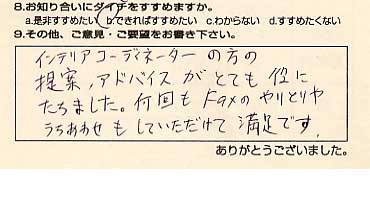 8.お知り合いにダイチをすすめますか。
a.是非すすめたい b.できればすすめたい c.わからない d.すすめたくない
9.その他、ご意見・ご要望をお書き下さい。
インテリアコーディネーターの方の
提案,アドバイスがとても役に
たちました。何回もFaxのやりとりや
うちあわせもしていただけて満足です.
ありがとうございました。